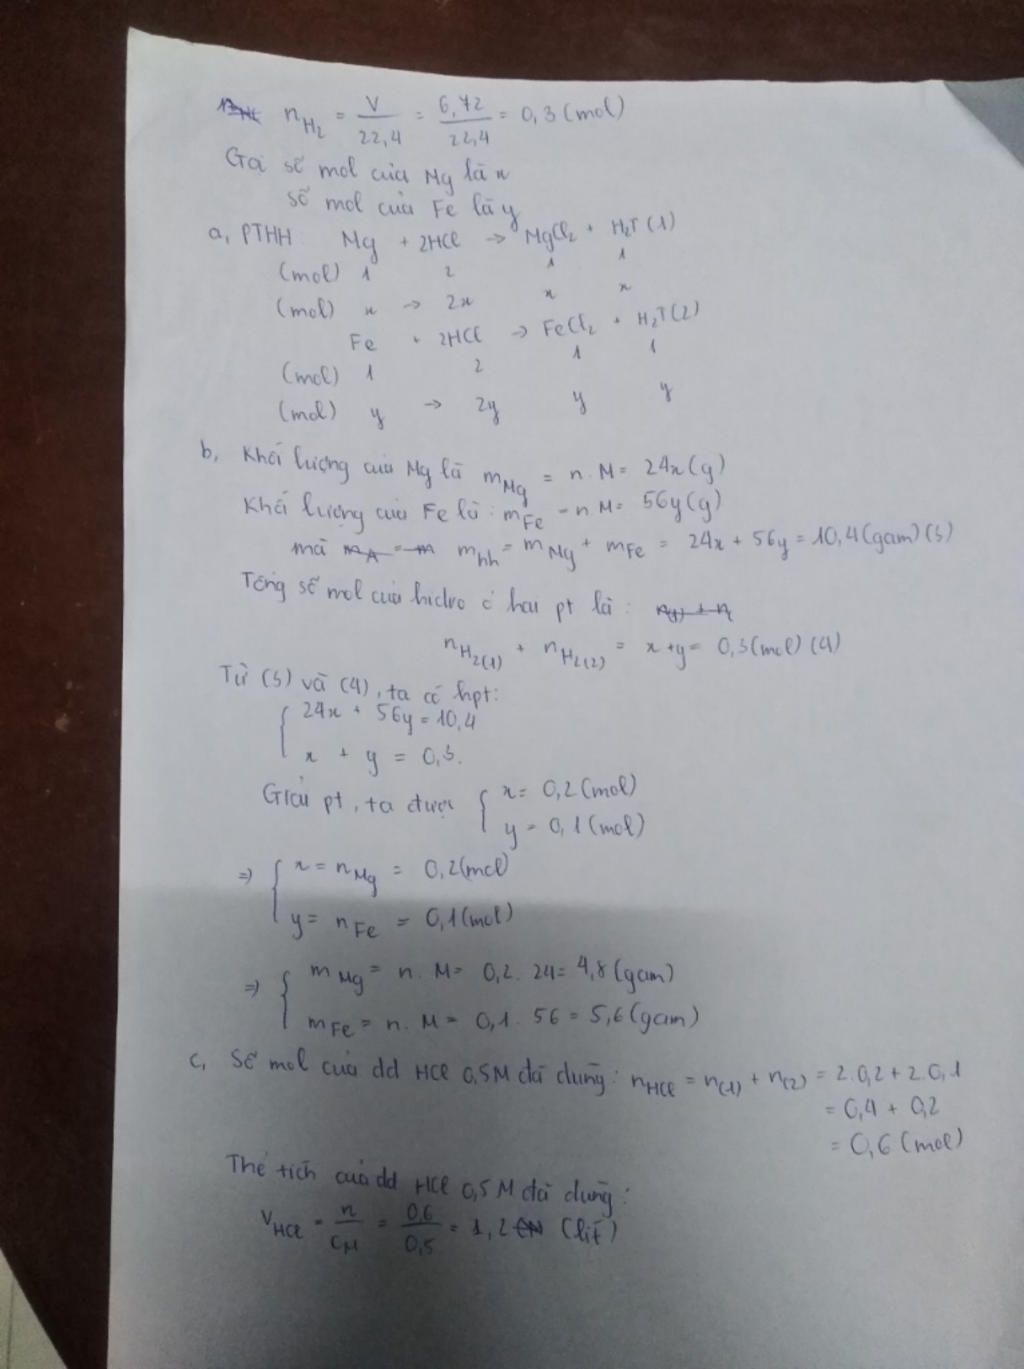 n_H₂ = V/22,4 = 6,72/22,4 = 0,3 (mol)
Gọi số mol của Mg là x
số mol của Fe là y
a, PTHH: Mg + 2HCl → MgCl₂ + H₂↑ (1)
(mol) 1 2 1 1
(mol) x → 2x x x
Fe + 2HCl → FeCl₂ + H₂↑ (2)
(mol) 1 2 1 1
(mol) y → 2y y y
b, Khối lượng của Mg là m_Mg = n.M = 24x (g)
Khối lượng của Fe là: m_Fe = n.M = 56y (g)
mà m_hh = m_Mg + m_Fe = 24x + 56y = 10,4 (gam) (3)
Tổng số mol của hidro ở hai pt là:
n_H₂(1) + n_H₂(2) = x + y = 0,3 (mol) (4)
Từ (3) và (4), ta có hpt:
{ 24x + 56y = 10,4
x + y = 0,3.
Giải pt, ta được { x = 0,2 (mol)
y = 0,1 (mol)
⇒ { x = n_Mg = 0,2 (mol)
y = n_Fe = 0,1 (mol)
⇒ { m_Mg = n.M = 0,2.24 = 4,8 (gam)
m_Fe = n.M = 0,1.56 = 5,6 (gam)
c, Số mol của dd HCl 0,5M đã dùng: n_HCl = n(1) + n(2) = 2.0,2 + 2.0,1
= 0,4 + 0,2
= 0,6 (mol)
Thể tích của dd HCl 0,5M đã dùng:
V_HCl = n/C_M = 0,6/0,5 = 1,2 (lít)